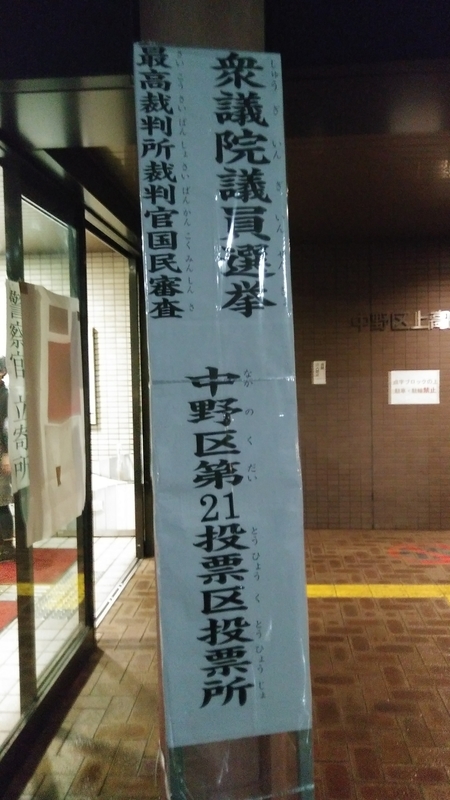 衆議院議員選挙
しゅうぎいんぎいんせんきょ
最高裁判所裁判官国民審査
さいこうさいばんしょさいばんかんこくみんしんさ
中野区第21投票区投票所
ながのくだいとうひょうくとうひょうじょ
警察官立寄所
中野区上高